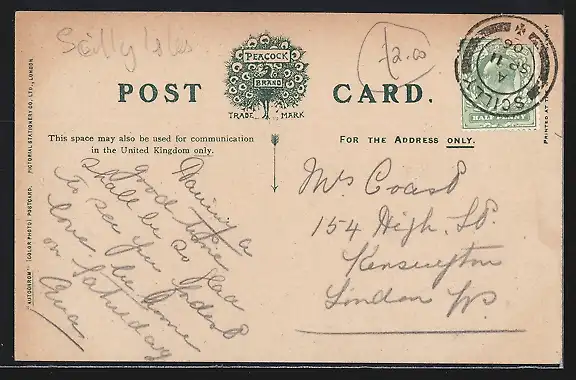 Scilly Isles
£2.00
POST CARD.
PEACOCK
BRAND
TRADE MARK
SCILLY
HALF PENNY
This space may also be used for communication
in the United Kingdom only.
FOR THE ADDRESS ONLY.
"AUTOCHROM" (COLOR PHOTO) POSTCARD. PICTORIAL STATIONERY CO. LTD., LONDON
PRINTED AT THE
Having a
good time
shall be so glad
to see you fondest
love. be home
on Saturday
Mrs Coast
154 High. St.
Kensington
London W.